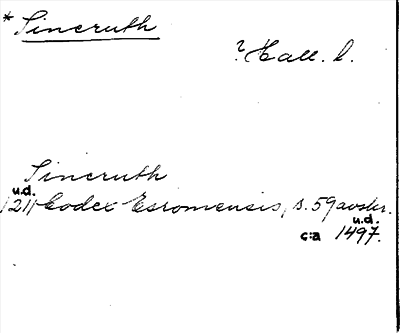 * Sincruth
? Hall. l.
Sincruth
u.d.
1211 Codex Esromensis, s. 59 avskr.
u.d.
c:a 1497.